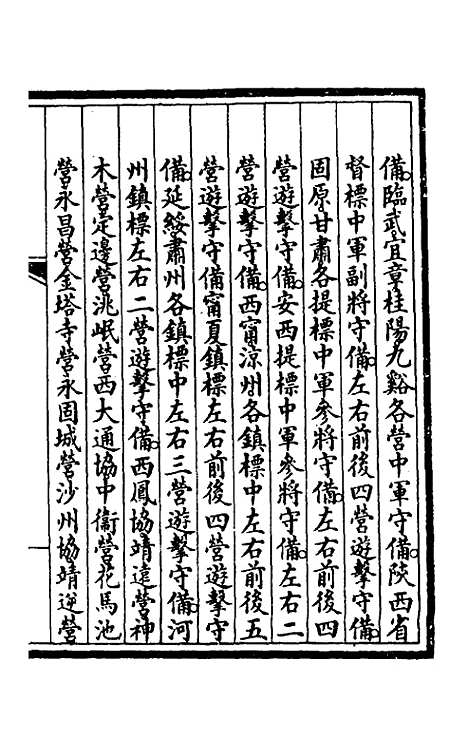 備。臨武宜章桂陽九谿各營中軍守備。陝西省
督標中軍副將守備。左右前後四營遊擊守備。
固原甘肅各提標中軍參將守備。左右前後四
營遊擊守備。安西提標中軍參將守備。左右二
營遊擊守備。西甯涼州各鎮標中左右前後五
營遊擊守備甯夏鎮標左右前後四營遊擊守
備。延綏肅州各鎮標中左右三營遊擊守備。河
州鎮標左右二營遊擊守備。西鳳協靖遠營神
木營定邊營洮岷營西大通協中衞營花馬池
營永昌營金塔寺營永固城營沙州協靖逆營